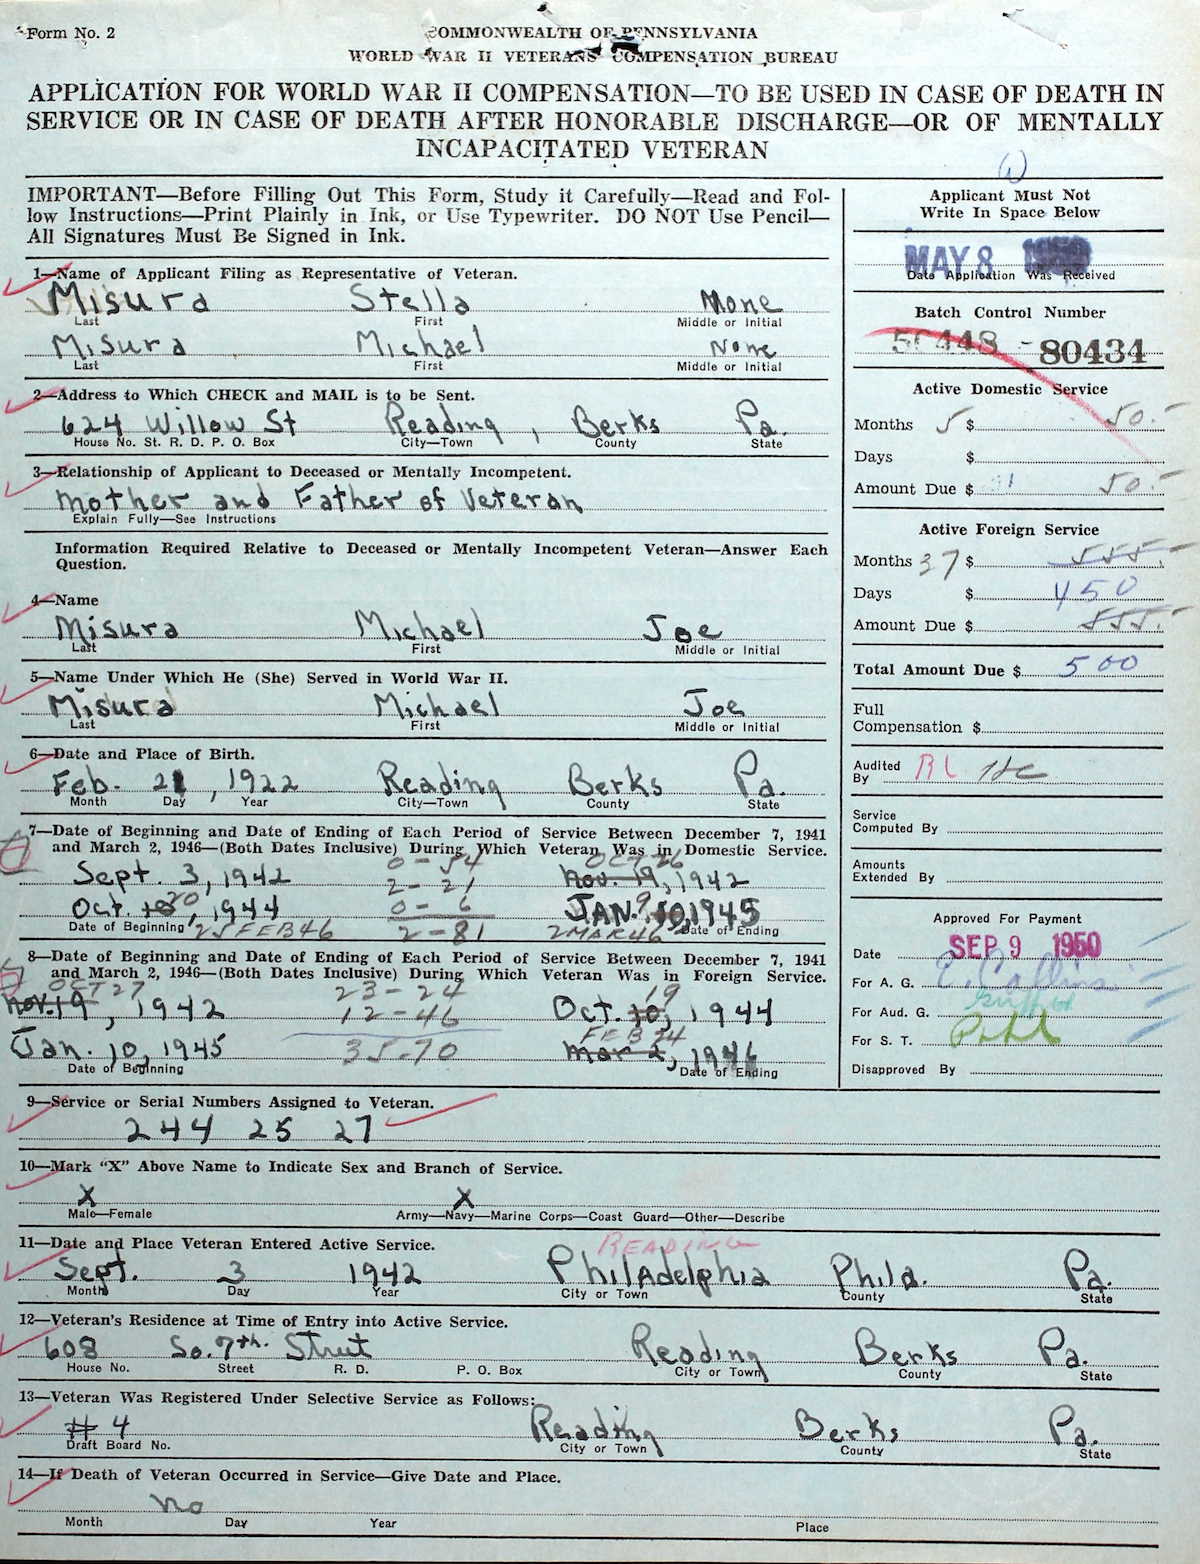 Form No. 2
COMMONWEALTH OF PENNSYLVANIA
WORLD WAR II VETERANS COMPENSATION BUREAU
APPLICATION FOR WORLD WAR II COMPENSATION—TO BE USED IN CASE OF DEATH IN
SERVICE OR IN CASE OF DEATH AFTER HONORABLE DISCHARGE—OR OF MENTALLY
INCAPACITATED VETERAN
IMPORTANT—Before Filling Out This Form, Study it Carefully—Read and Fol-
low Instructions—Print Plainly in Ink, or Use Typewriter. DO NOT Use Pencil—
All Signatures Must Be Signed in Ink.
1—Name of Applicant Filing as Representative of Veteran.
Misura Stella None
Last First Middle or Initial
Misura Michael None
Last First Middle or Initial
2—Address to Which CHECK and MAIL is to be Sent.
624 Willow St Reading, Berks Pa.
House No. St. R. D. P. O. Box City—Town County State
3—Relationship of Applicant to Deceased or Mentally Incompetent.
Mother and Father of Veteran
Explain Fully—See Instructions
Information Required Relative to Deceased or Mentally Incompetent Veteran—Answer Each
Question.
4—Name
Misura Michael Joe
Last First Middle or Initial
5—Name Under Which He (She) Served in World War II.
Misura Michael Joe
Last First Middle or Initial
6—Date and Place of Birth.
Feb. 21, 1922 Reading Berks Pa.
Month Day Year City—Town County State
7—Date of Beginning and Date of Ending of Each Period of Service Between December 7, 1941
and March 2, 1946—(Both Dates Inclusive) During Which Veteran Was in Domestic Service.
0-54 OCT 26
Sept. 3, 1942 2-21 Nov. 19, 1942
20 9
Oct. 1944 0-6 JAN. 10, 1945
Date of Beginning 25 FEB 46 2-81 2 MAR 46 Date of Ending
8—Date of Beginning and Date of Ending of Each Period of Service Between December 7, 1941
and March 2, 1946—(Both Dates Inclusive) During Which Veteran Was in Foreign Service.
OCT 27 23-24 19
Nov. 19, 1942 12-46 Oct. 10, 1944
FEB 24
Jan. 10, 1945 35-70 Mar 2, 1946
Date of Beginning Date of Ending
9—Service or Serial Numbers Assigned to Veteran.
244 25 27
10—Mark “X” Above Name to Indicate Sex and Branch of Service.
X X
Male—Female Army—Navy—Marine Corps—Coast Guard—Other—Describe
11—Date and Place Veteran Entered Active Service.
READING
Sept. 3 1942 Philadelphia Phila. Pa.
Month Day Year City or Town County State
12—Veteran's Residence at Time of Entry into Active Service.
608 So. 7th. Street Reading Berks Pa.
House No. Street R. D. P. O. Box City or Town County State
13—Veteran Was Registered Under Selective Service as Follows:
# 4 Reading Berks Pa.
Draft Board No. City or Town County State
14—If Death of Veteran Occurred in Service—Give Date and Place.
no
Month Day Year Place
Applicant Must Not
Write In Space Below
MAY 8 1950
Date Application Was Received
Batch Control Number
50448 - 80434
Active Domestic Service
Months 5 $ 50.-
Days $
Amount Due $ 50.-
Active Foreign Service
Months 37 $ 555.-
Days $ 450
Amount Due $ 555.-
Total Amount Due $ 500
Full
Compensation $
Audited
By
Service
Computed By
Amounts
Extended By
Approved For Payment
Date SEP 9 1950
For A. G. E. Collins
For Aud. G.
For S. T.
Disapproved By